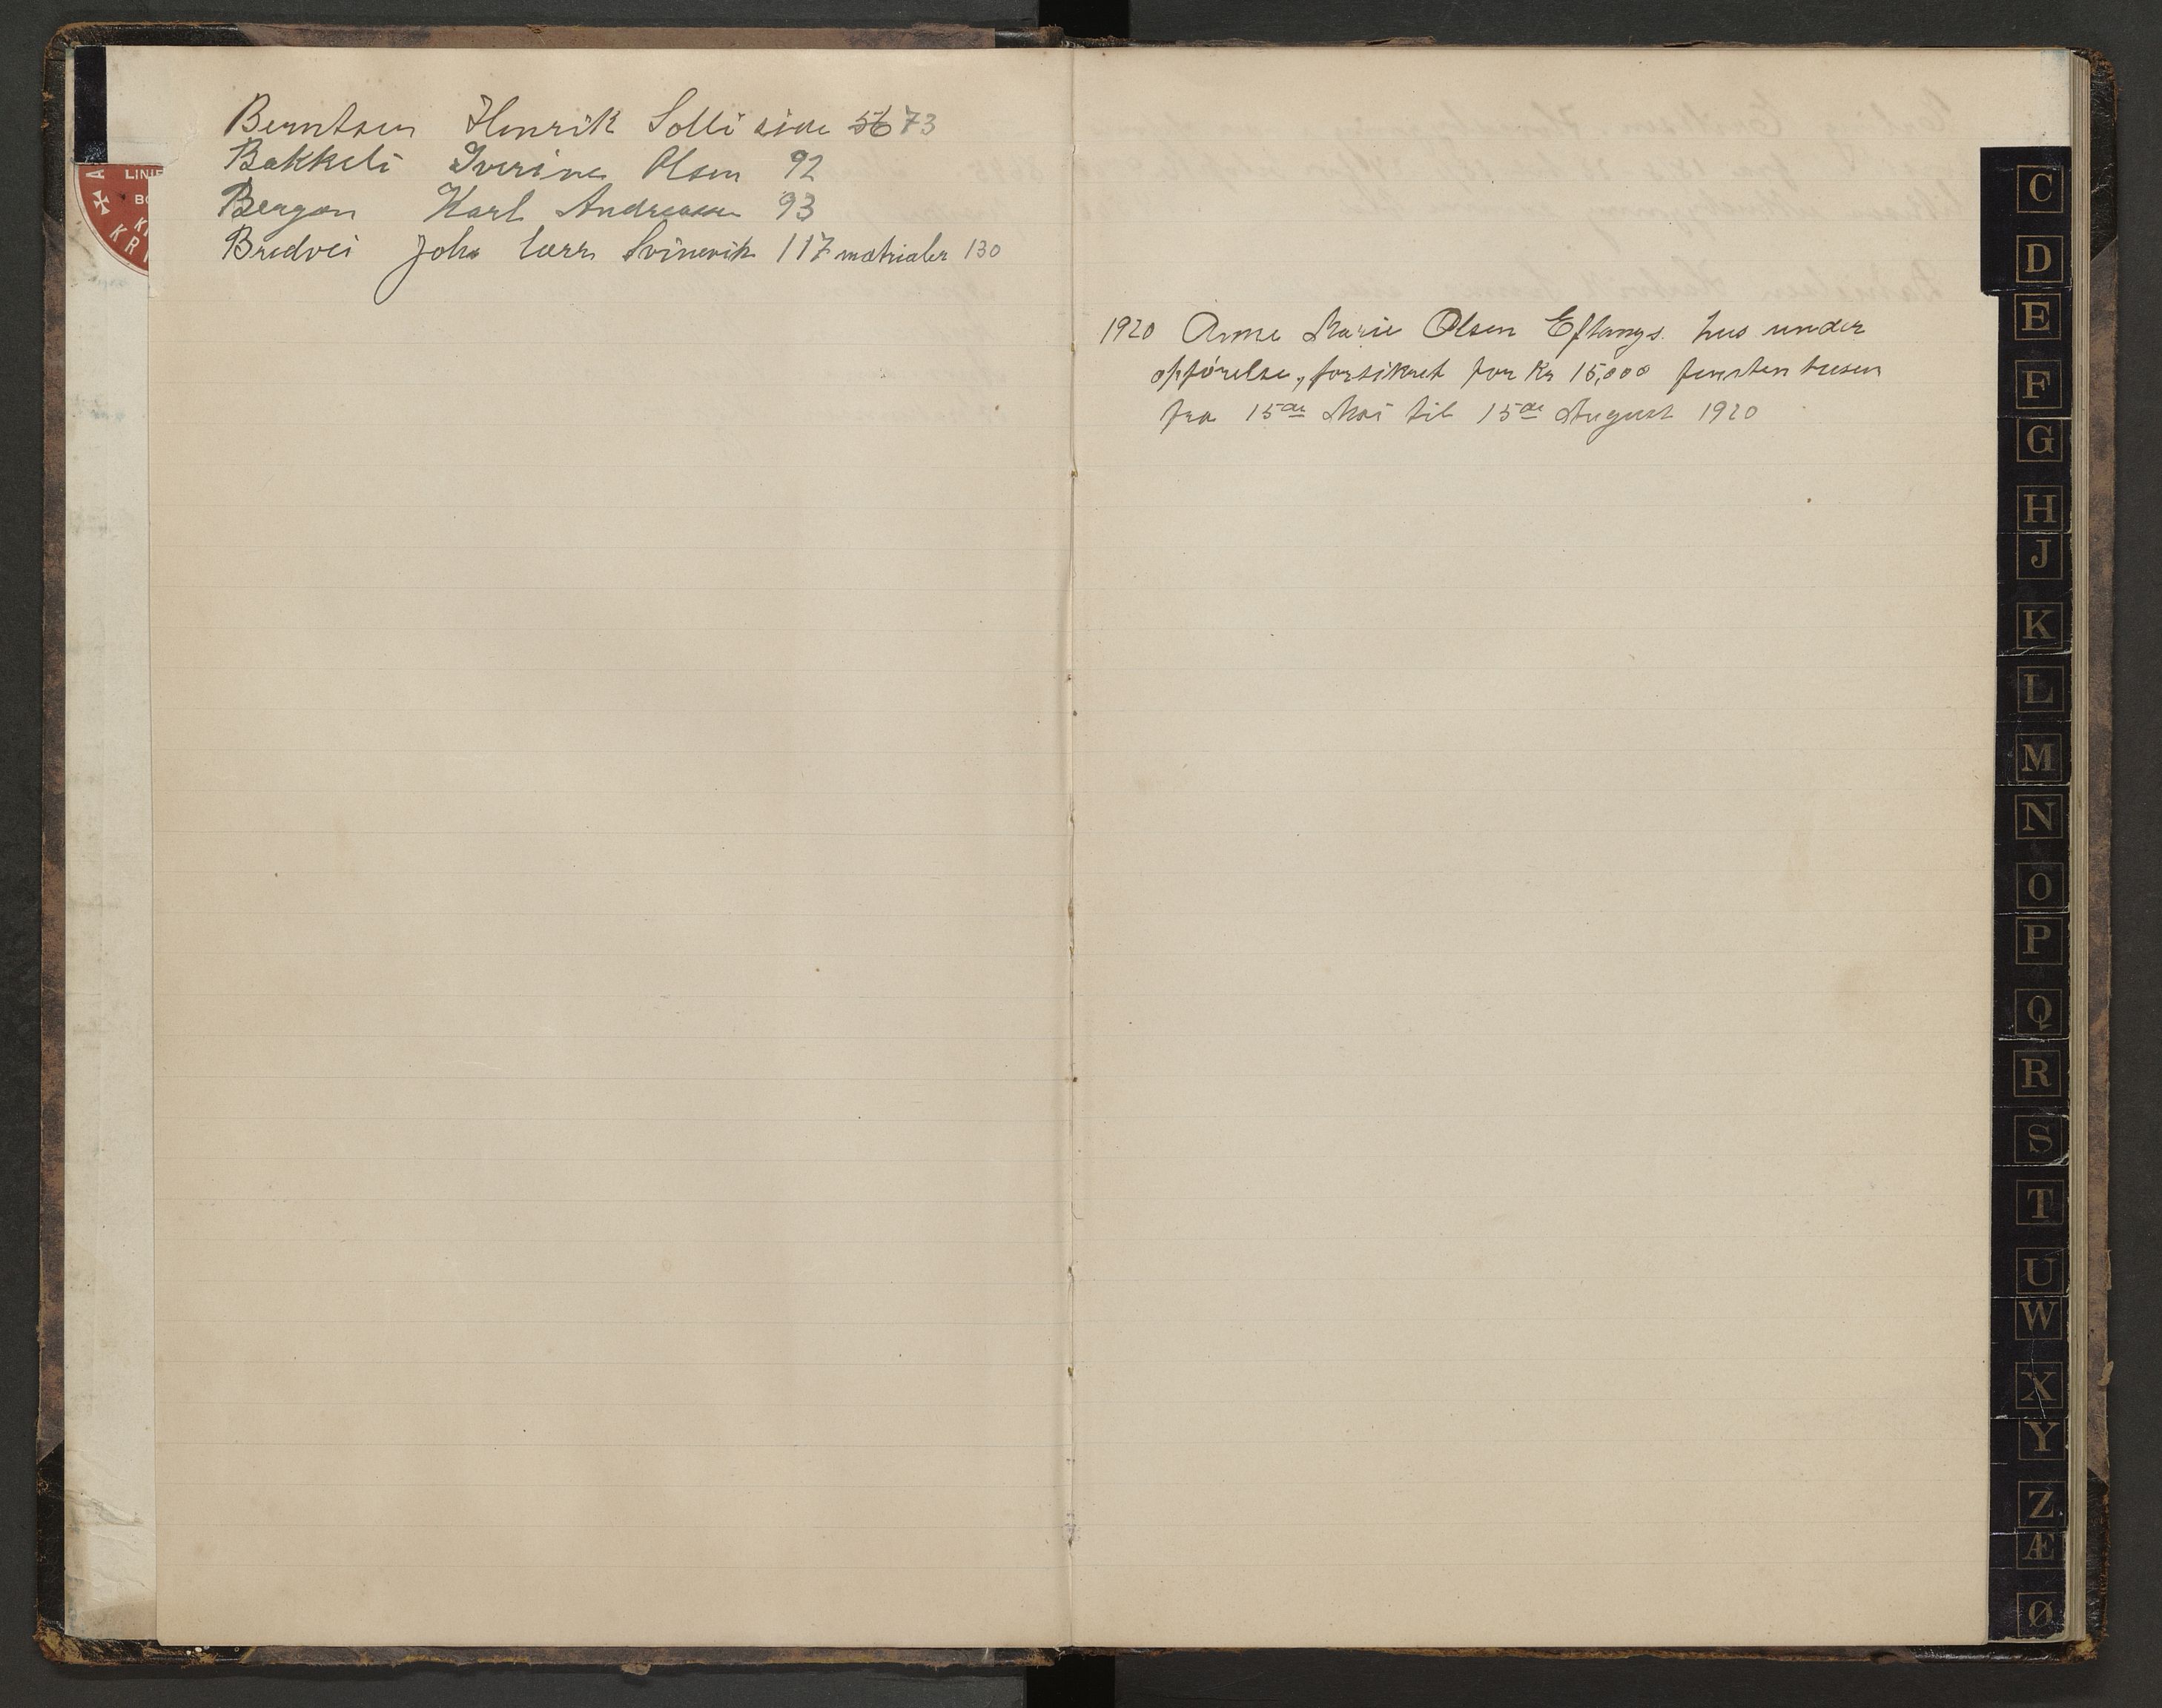 Berntsen Henrik Solli side 56 73
Bakkeli Iverine Olsen 92
Bergan Karl Andreasen 93
Bredvei Joh. Svinevik 117 matrialer 130
1920 Anna Marie Olsen Eftangs. hus under
opførelse, forsikret for Kr 15,000 femten tusen
fra 15de Mai til 15de August 1920
LINIE
A
KR
C
D
E
F
G
H
J
K
L
M
N
O
P
Q
R
S
T
U
W
X
Y
Z
Æ
Ø